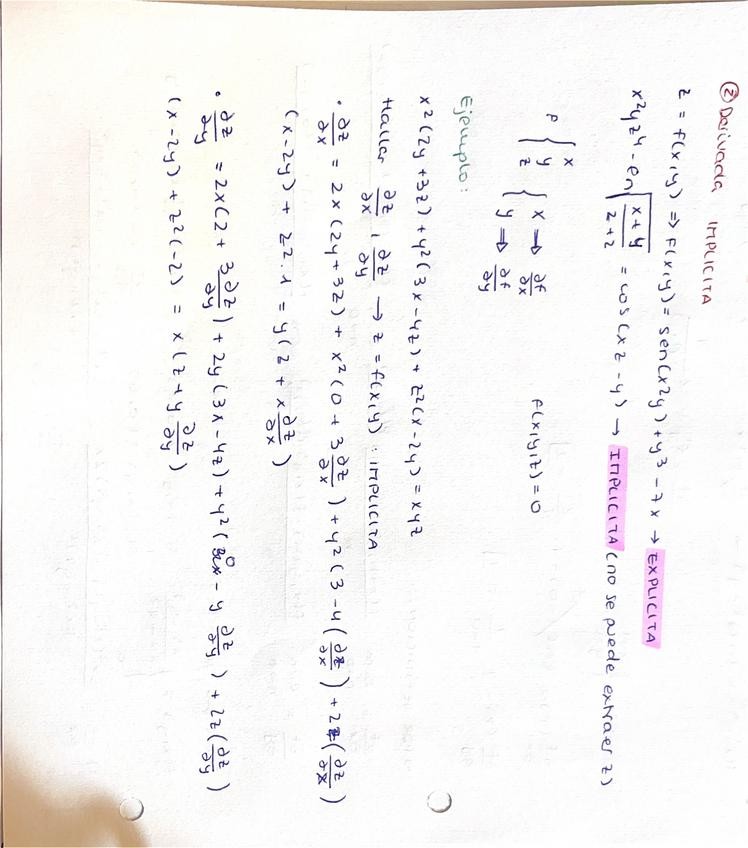 ② Derivada IMPLICITA
z = f(x,y) ⇒ F(x,y) = sen(x²y) + y³ - 7x → EXPLICITA
x²yz⁴ - en √(x+y / z+2) = cos(xz - y) → IMPLICITA (no se puede extraer z)
F { x y z { x → ∂f/∂x y → ∂f/∂y F(x,y,z) = 0
Ejemplo:
x²(2y+3z) + y²(3x-4z) + z²(x-2y) = xyz
Hallar ∂z/∂x , ∂z/∂y → z = f(x,y) : IMPLICITA
• ∂z/∂x = 2x(2y+3z) + x²(0 + 3∂z/∂x) + y²(3 - 4(∂z/∂x) + 2z(∂z/∂x)
(x-2y) + z².1 = y(z + x ∂z/∂x)
• ∂z/∂y = 2x(2 + 3∂z/∂y) + 2y(3x-4z) + y²( 0 - y ∂z/∂y ) + 2z(∂z/∂y)
(x-2y) + z²(-2) = x(z+y ∂z/∂y)